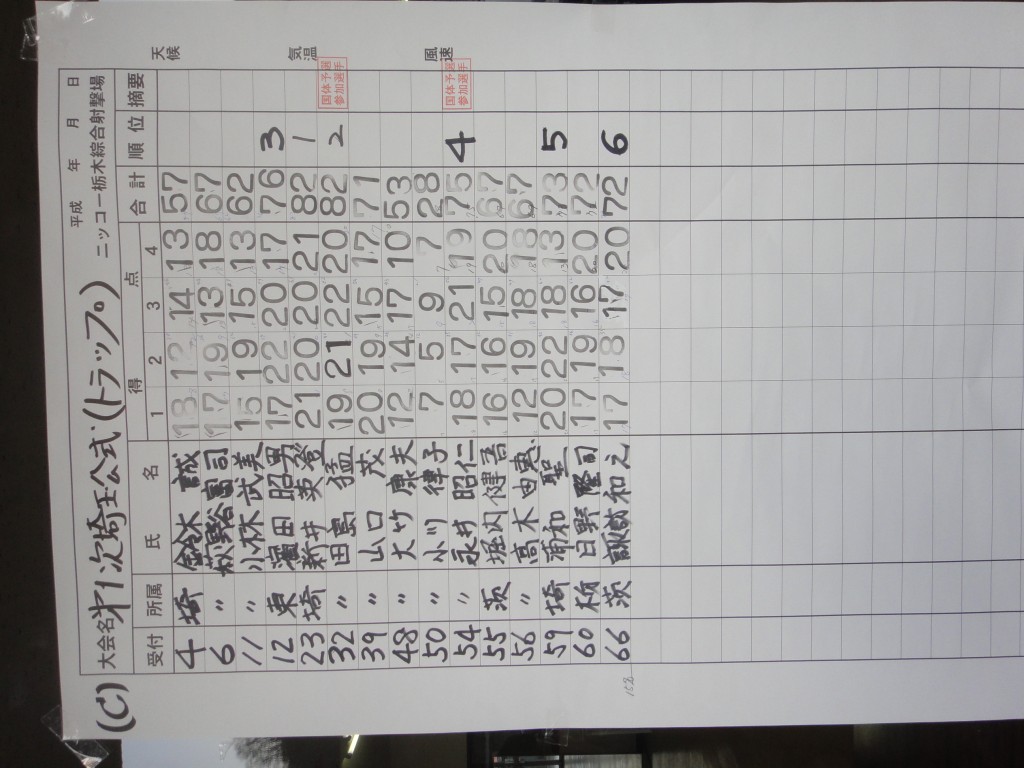 (C) 大会名 第1次埼玉公式(トラップ) 平成 年 月 日
ニッコー栃木綜合射撃場
天候 気温 風速
受付 所属 氏名 得点 1 2 3 4 合計 順位 摘要
4 埼 鈴木 誠 18 12 14 13 57
6 〃 萩野谷富司 17 19 13 18 67
11 〃 小林 武美 15 19 15 13 62
12 東 濱田 昭男 17 22 20 17 76 3
23 埼 新井 英澄 21 20 20 21 82 1
32 〃 田島 猛 19 21 22 20 82 2 国体予選参加選手
39 〃 山口 茂 20 19 15 17 71
48 〃 大竹 康夫 12 14 17 10 53
50 〃 小川 律子 7 5 9 7 28
54 〃 永井 昭仁 18 17 21 19 75 4 国体予選参加選手
55 茨 堀内 健吾 16 16 15 20 67
56 〃 高木 由恵 12 19 18 18 67
59 埼 浦和 聖 20 22 18 13 73 5
60 栃 日野 隆司 17 19 16 20 72
66 茨 諏訪 和之 17 18 17 20 72 6